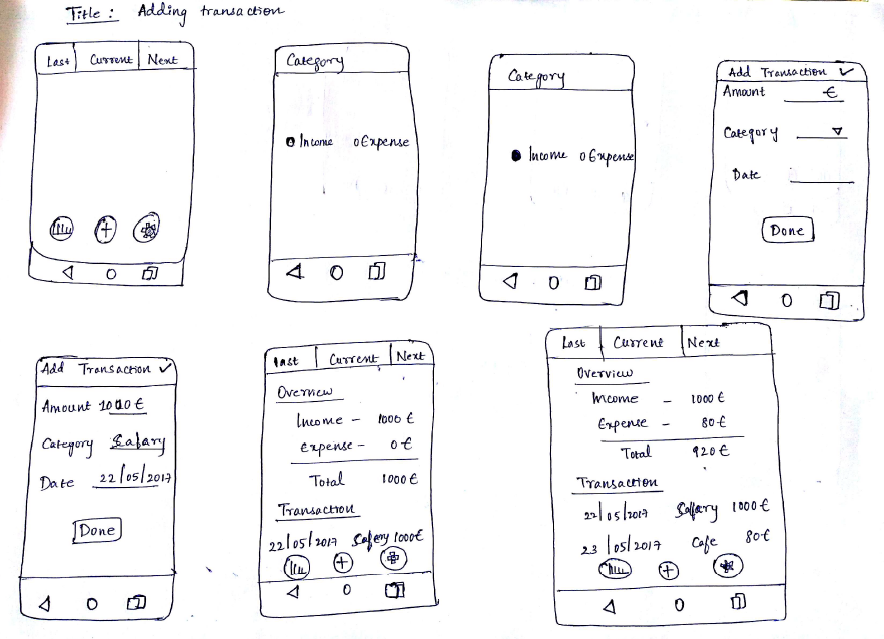 Title : Adding transaction
Last Current Next
Category
Income Expense
Category
Income Expense
Add Transaction ✓
Amount €
Category
Date
Done
Add Transaction ✓
Amount 1000 €
Category Salary
Date 22/05/2017
Done
Last Current Next
Overview
Income - 1000 €
Expense - 0 €
Total 1000 €
Transaction
22/05/2017 Salary 1000€
Last Current Next
Overview
Income - 1000 €
Expense - 80 €
Total 920 €
Transaction
22/05/2017 Salary 1000€
23/05/2017 Cafe 80€